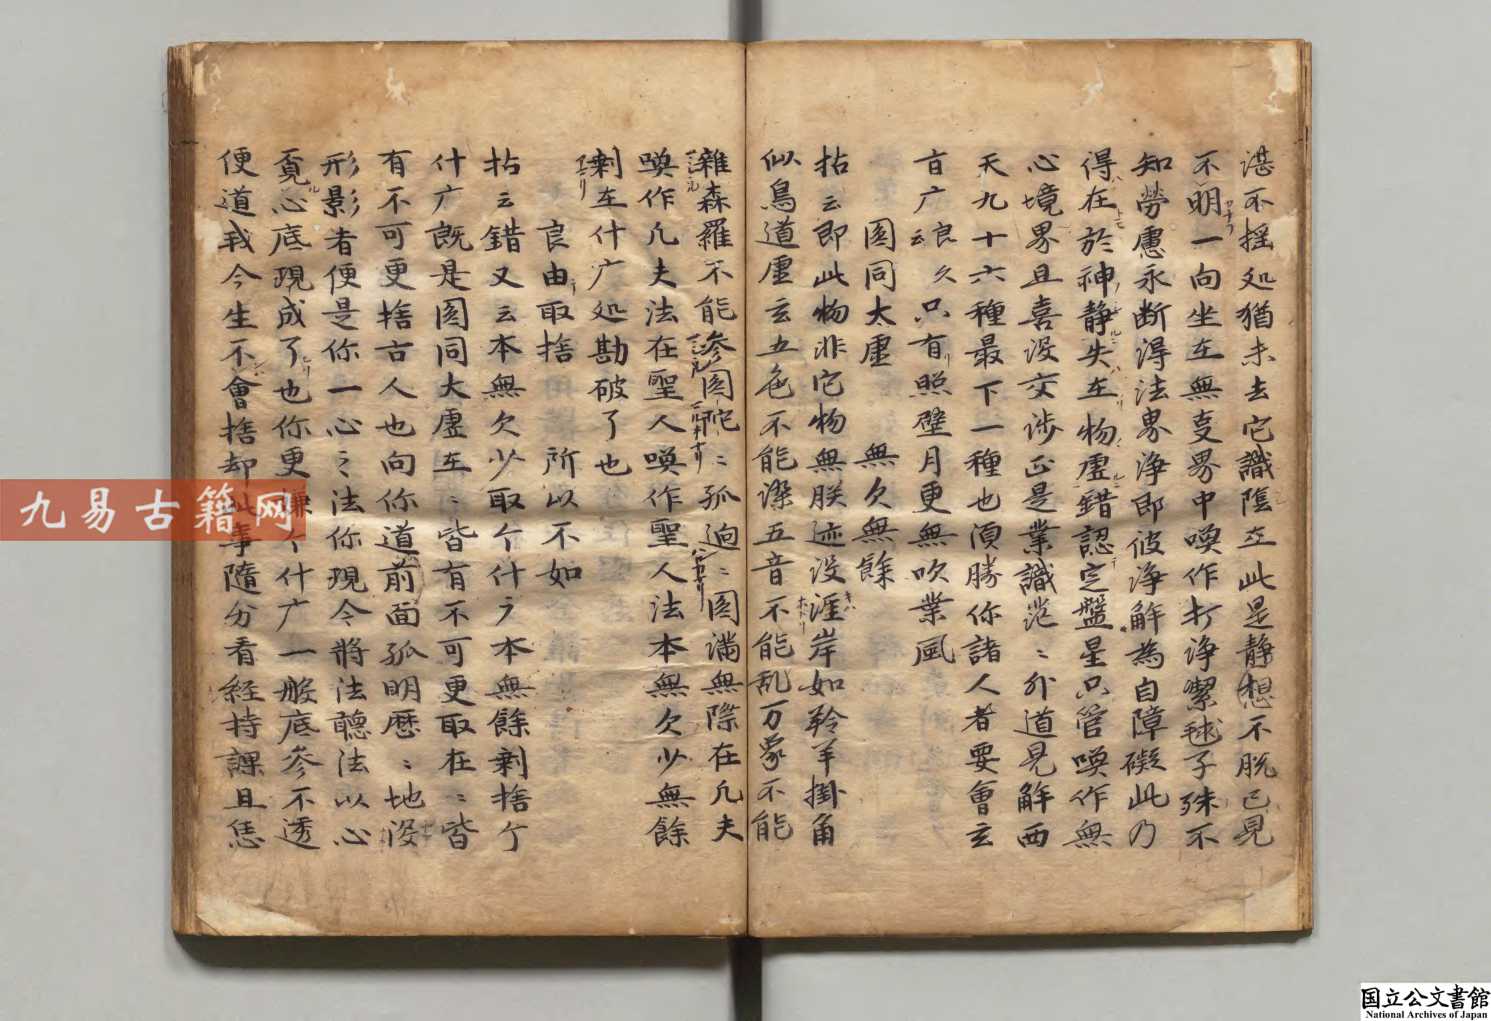 湛不揺処猶未去它識陰在此是静想不脱已見
不明一向坐在無夐界中喚作打浄潔毬子殊不
知勞慮永断得法界浄即彼浄解為自障礙此乃
得在於神静失在物虚錯認定盤星只管喚作無
心境界且喜没交渉正是業識茫〻外道見解西
天九十六種最下一種也須勝你諸人者要會玄
旨广良久云只有照壁月更無吹業風
圎同太虚 無欠無餘
拈云即此物非它物無朕迹没涯岸如羚羊掛角
似鳥道虚玄五色不能染五音不能乱万象不能
雜森羅不能参圎陀〻孤迥〻圎満無際在凢夫
喚作凢夫法在聖人喚作聖人法本無欠少無餘
剰在什广処勘破了也
良由取捨 所以不如
拈云錯又云本無欠少取个什广本無餘剰捨个
什广既是圎同太虚在〻皆有不可更取在〻皆
有不可更捨古人也向你道前面孤明歴〻地没
形影者便是你一心〻法你現今將法聴法以心
覔心底現成了也你更嫌个什广一般底参不透
便道我今生不會捨却此事隨分看経持課且恁
九易古籍网
国立公文書館
National Archives of Japan